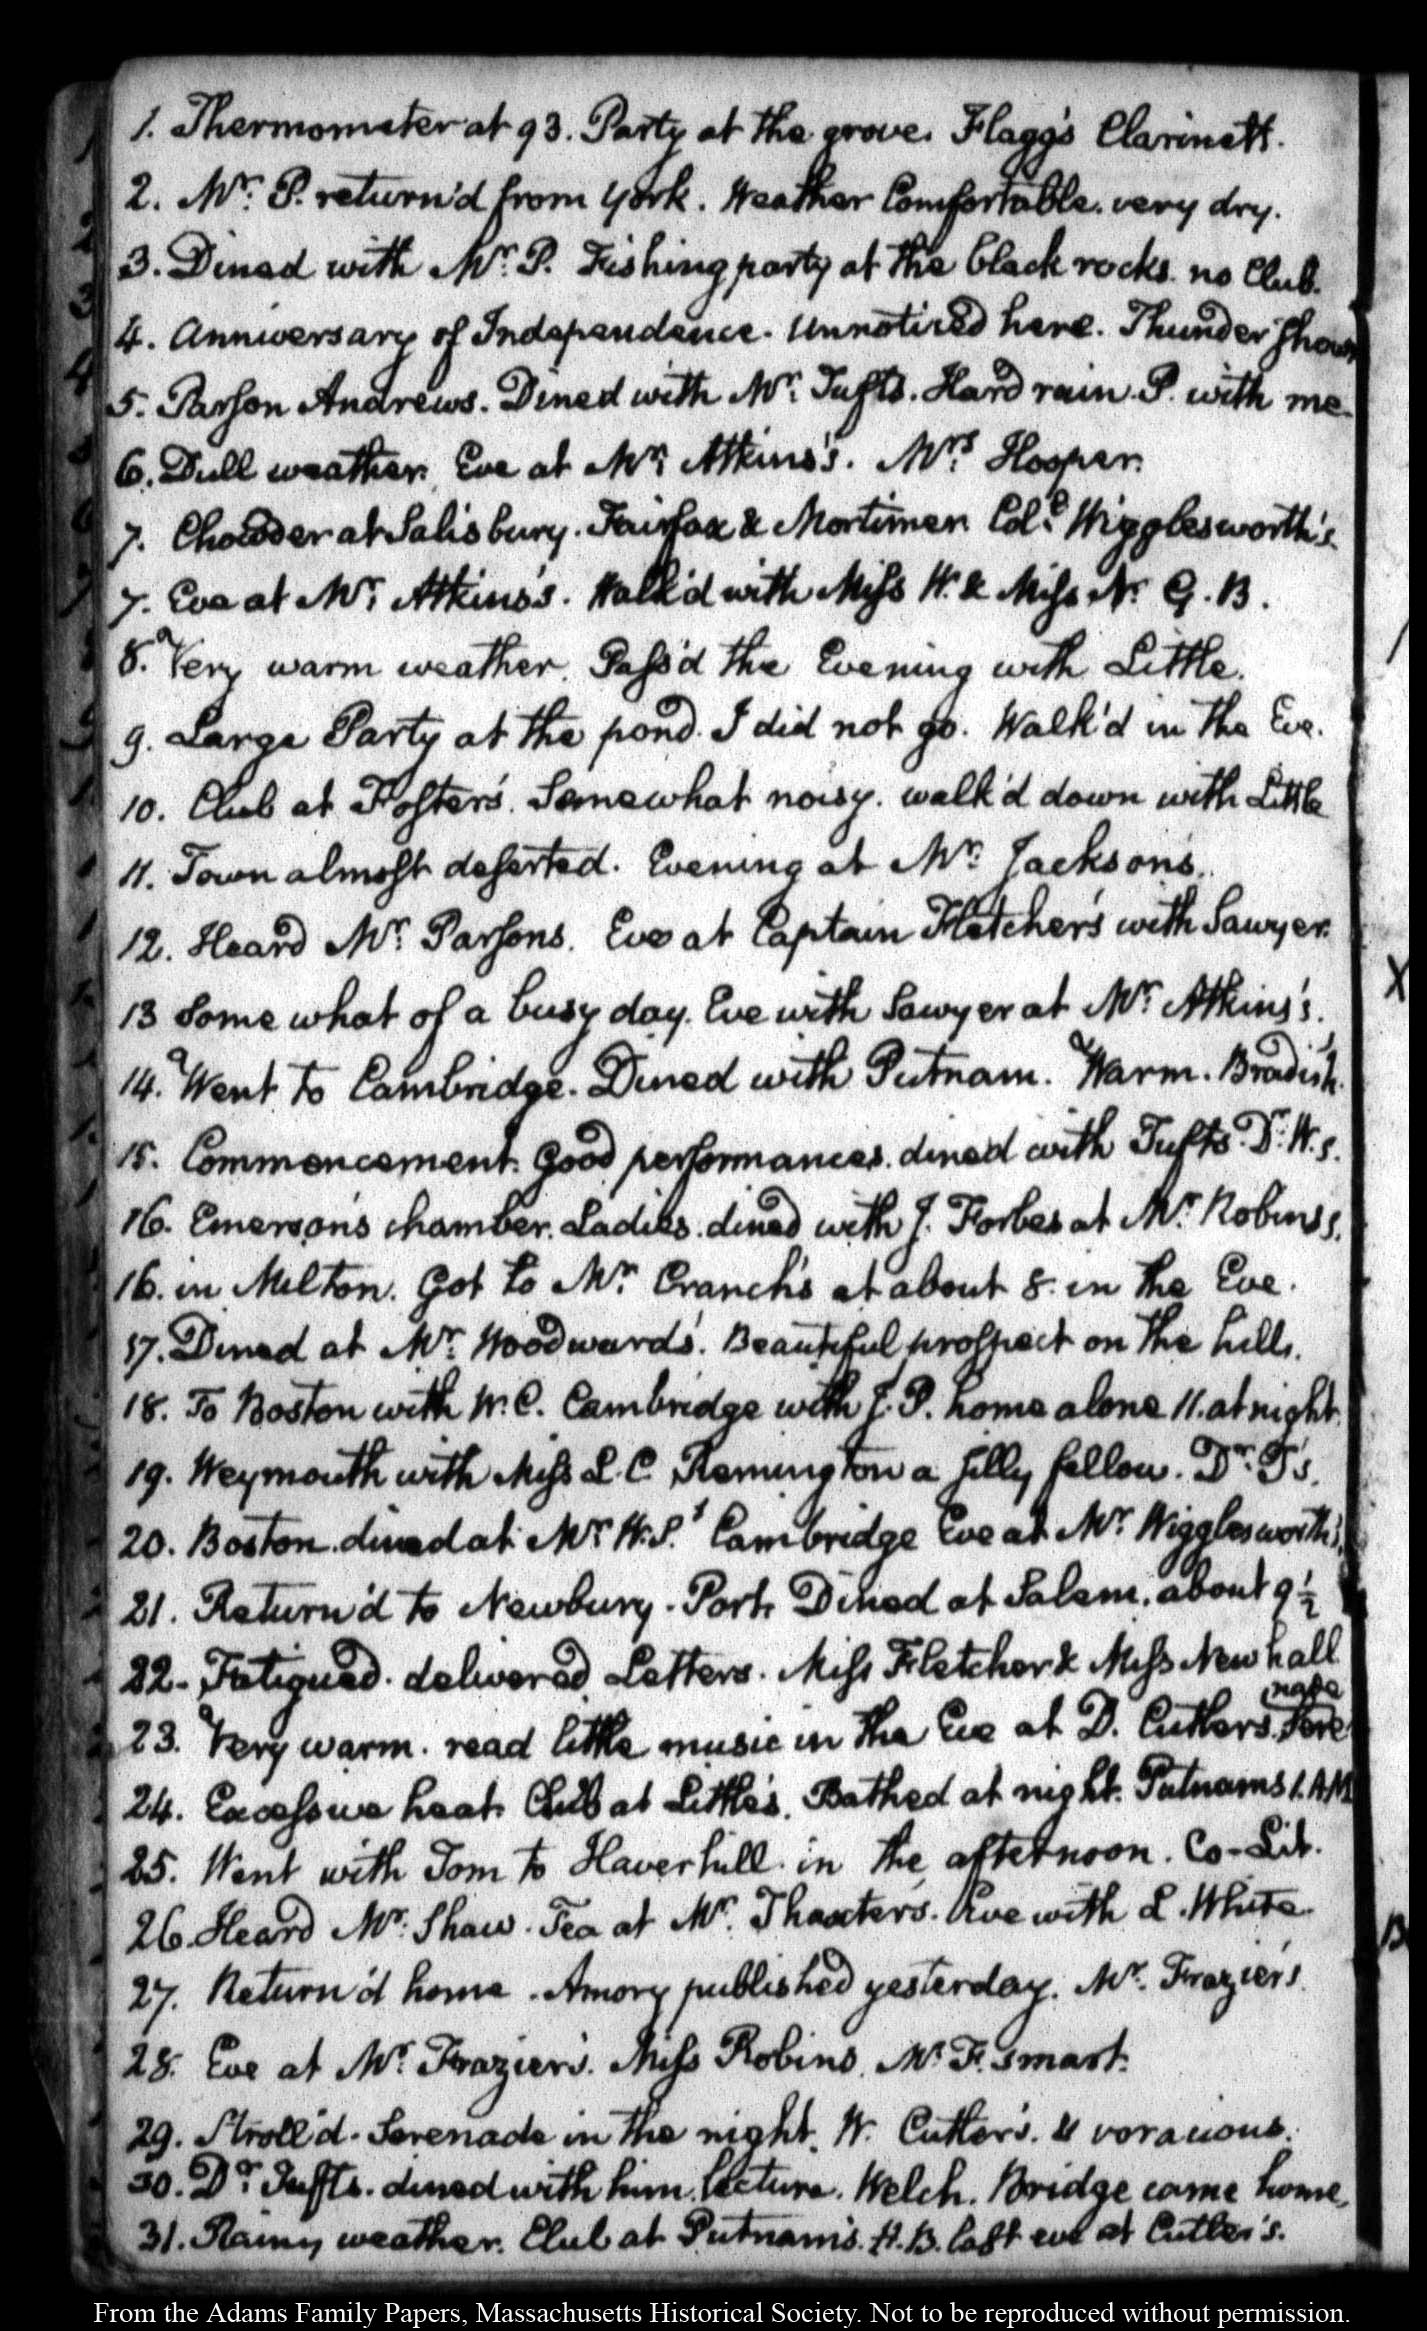 1. Thermometer at 93. Party at the grove. Flagg's Clarinett.
2. Mr. P. return'd from York. Weather Comfortable. very dry.
3. Dined with Mr. P. Fishing party at the black rocks. no Club.
4. Anniversary of Independence. Unnoticed here. Thunder Shower
5. Parson Andrews. Dined with Mr. Tufts. Hard rain. P. with me.
6. Dull weather. Eve at Mrs. Atkins's. Mrs. Hooper.
7. Chowder at Salisbury. Fairfax & Mortimer. Col. Wigglesworth's.
7. Eve at Mr. Atkins's. Walk'd with Miss W. & Miss N. G. B.
8. Very warm weather. Pass'd the Evening with Little.
9. Large Party at the pond. I did not go. Walk'd in the Eve.
10. Club at Foster's. Somewhat noisy. walk'd down with Little
11. Town almost deserted. Evening at Mr. Jackson's.
12. Heard Mr. Parsons. Eve at Captain Fletcher's with Sawyer.
13 Some what of a busy day. Eve with Sawyer at Mr. Atkins's.
14. Went to Cambridge. Dined with Putnam. Warm. Bradish.
15. Commencement. Good performances. dined with Tufts. Dr. W. s.
16. Emerson's chamber. Ladies. dined with J. Forbes at Mr. Robins's.
16. in Milton. Got to Mr. Cranch's at about 8. in the Eve.
17. Dined at Mr. Woodward's. Beautiful prospect on the hills.
18. To Boston with W. C. Cambridge with J. P. home alone 11. at night.
19. Weymouth with Miss L. C. Remington a silly fellow. Dr. T's.
20. Boston. dined at Mr. W. S.'s Cambridge Eve at Mr. Wigglesworth's.
21. Return'd to Newbury-Port. Dined at Salem. about 9 1/2
22. Fatigued. delivered Letters. Miss Fletcher & Miss Newhall
23. Very warm. read little music in the Eve at D. Cutler's. Sere
(nade
24. Excessive heat. Club at Little's. Bathed at night. Putnam's 1. A M
25. Went with Tom to Haverhill. in the afternoon. Co-Lit.
26. Heard Mr. Shaw. Tea at Mr. Thaxter's. Eve with L. White.
27. Return'd home. Amory published yesterday. Mr. Frazier's.
28. Eve at Mr. Frazier's. Miss Robins. Mr. F. smart.
29. Stroll'd. Serenade in the night. W. Cutler's. voracious.
30. Dr. Tufts. dined with him. lecture. Welch. Bridge came home.
31. Rainy weather. Club at Putnam's. H. B. last eve at Cutler's.
From the Adams Family Papers, Massachusetts Historical Society. Not to be reproduced without permission.